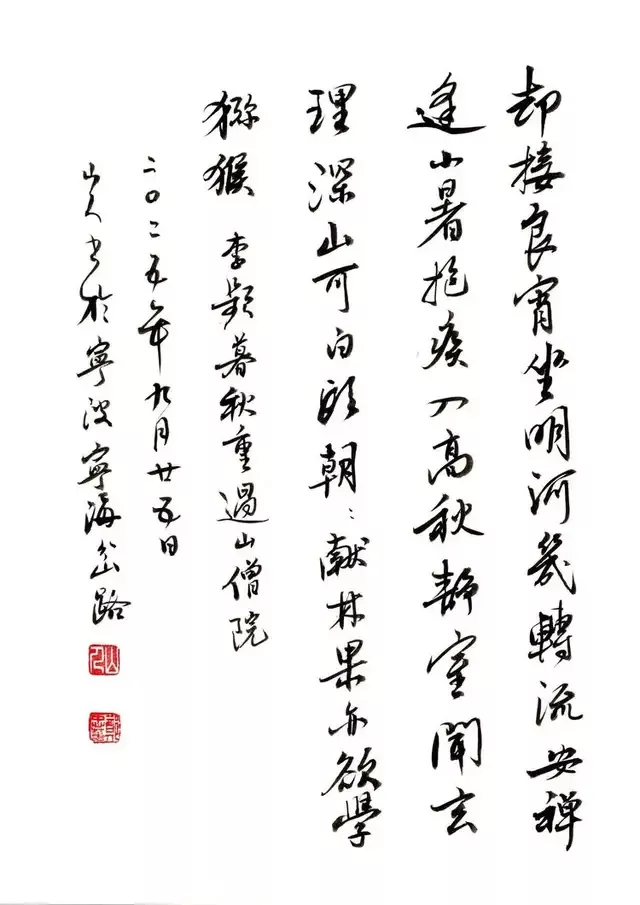 却接良宵坐明河幾轉流安禅
逢小暑抱疾入高秋静室聞玄
理深山可白頭朝〻献林果亦欲學
猕猴 李頻暮秋重過山僧院
二〇二五年九月廿五日
山人书於寧波寧海岔路
山人